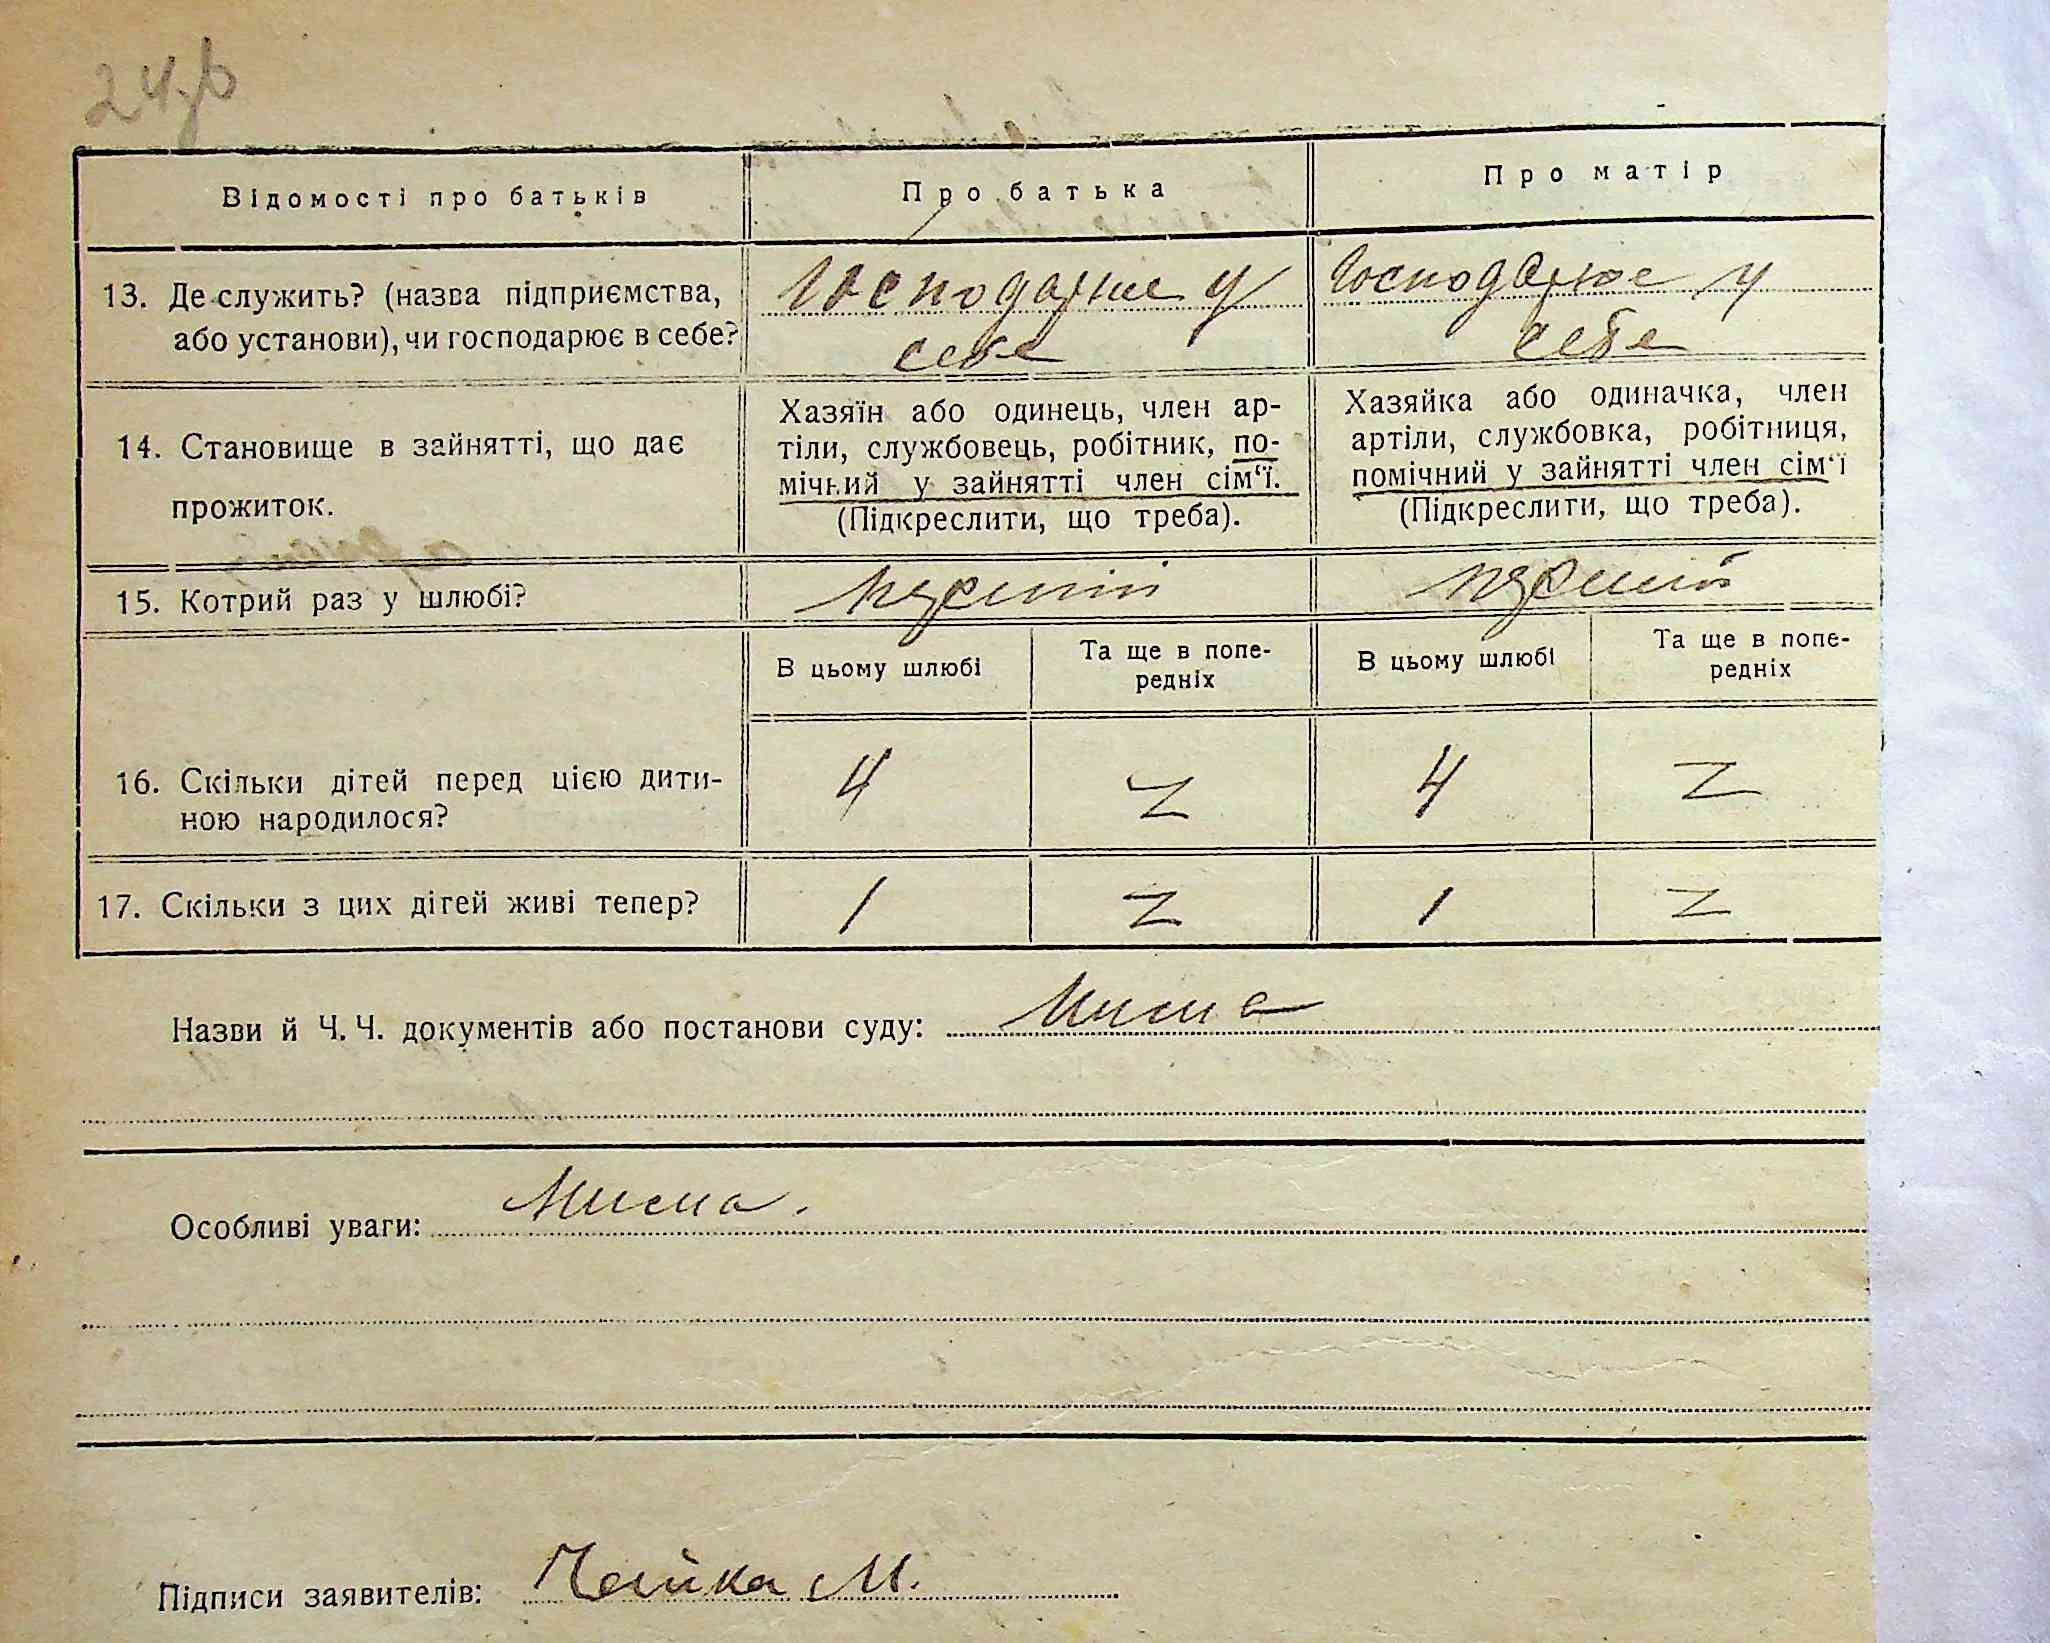 24зв
Відомості про батьків
Про батька
Про матір
13. Де служить? (назва підприємства,
або установи), чи господарює в себе?
Господарює у
себе
Господарює у
себе
14. Становище в зайнятті, що дає
прожиток.
Хазяїн або одинець, член ар-
тіли, службовець, робітник, по-
мічний у зайнятті член сім‘ї.
(Підкреслити, що треба).
Хазяйка або одиначка, член
артіли, службовка, робітниця,
помічний у зайнятті член сім‘ї
(Підкреслити, що треба).
15. Котрий раз у шлюбі?
перший
перший
В цьому шлюбі
Та ще в попе-
редніх
В цьому шлюбі
Та ще в попе-
редніх
16. Скільки дітей перед цією дити-
ною народилося?
4
4
17. Скільки з цих дітей живі тепер?
1
1
Назви й Ч. Ч. документів або постанови суду:
Особливі уваги:
Підписи заявителів: Чайка М.